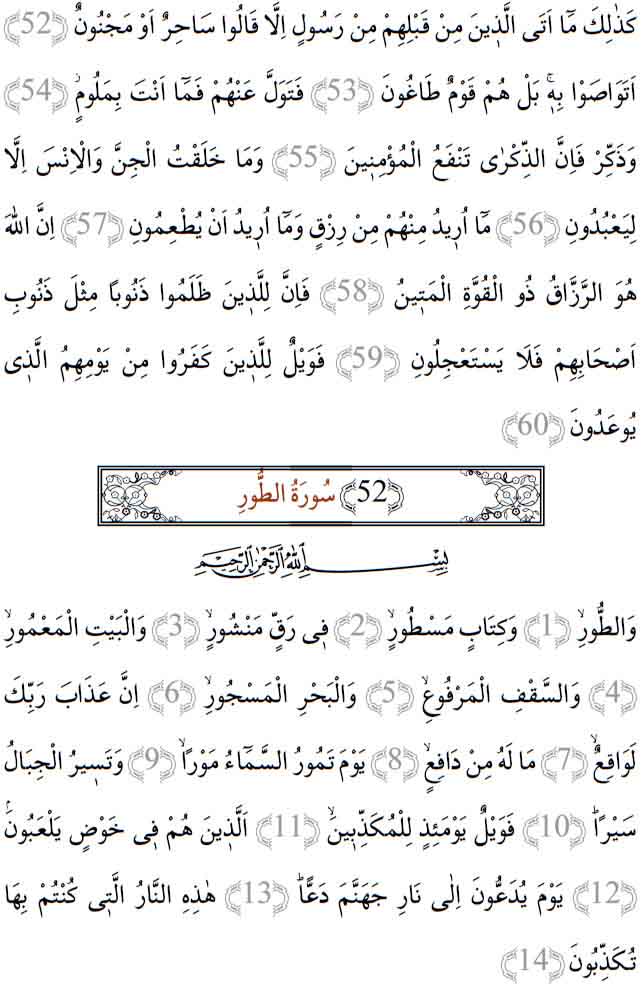 كَذٰلِكَ مَٓا اَتَى الَّذ۪ينَ مِنْ قَبْلِهِمْ مِنْ رَسُولٍ اِلَّا قَالُوا سَاحِرٌ اَوْ مَجْنُونٌ ﴿52﴾
اَتَوَاصَوْا بِه۪ۚ بَلْ هُمْ قَوْمٌ طَاغُونَ ﴿53﴾ فَتَوَلَّ عَنْهُمْ فَمَٓا اَنْتَ بِمَلُومٍۘ ﴿54﴾
وَذَكِّرْ فَاِنَّ الذِّكْرٰى تَنْفَعُ الْمُؤْمِن۪ينَ ﴿55﴾ وَمَا خَلَقْتُ الْجِنَّ وَالْاِنْسَ اِلَّا
لِيَعْبُدُونِ ﴿56﴾ مَٓا اُر۪يدُ مِنْهُمْ مِنْ رِزْقٍ وَمَٓا اُر۪يدُ اَنْ يُطْعِمُونِ ﴿57﴾ اِنَّ اللّٰهَ
هُوَ الرَّزَّاقُ ذُو الْقُوَّةِ الْمَت۪ينُ ﴿58﴾ فَاِنَّ لِلَّذ۪ينَ ظَلَمُوا ذَنُوباً مِثْلَ ذَنُوبِ
اَصْحَابِهِمْ فَلَا يَسْتَعْجِلُونِ ﴿59﴾ فَوَيْلٌ لِلَّذ۪ينَ كَفَرُوا مِنْ يَوْمِهِمُ الَّذ۪ي
يُوعَدُونَ ﴿60﴾
﴿52﴾ سُورَةُ الطُّورِ
بِسْمِ اللّٰهِ الرَّحْمٰنِ الرَّح۪يمِ
وَالطُّورِۙ ﴿1﴾ وَكِتَابٍ مَسْطُورٍۙ ﴿2﴾ ف۪ي رَقٍّ مَنْشُورٍۙ ﴿3﴾ وَالْبَيْتِ الْمَعْمُورِۙ
﴿4﴾ وَالسَّقْفِ الْمَرْفُوعِۙ ﴿5﴾ وَالْبَحْرِ الْمَسْجُورِۙ ﴿6﴾ اِنَّ عَذَابَ رَبِّكَ
لَوَاقِعٌۙ ﴿7﴾ مَا لَهُ مِنْ دَافِعٍۙ ﴿8﴾ يَوْمَ تَمُورُ السَّمَٓاءُ مَوْراًۙ ﴿9﴾ وَتَس۪يرُ الْجِبَالُ
سَيْراًۜ ﴿10﴾ فَوَيْلٌ يَوْمَئِذٍ لِلْمُكَذِّب۪ينَۙ ﴿11﴾ اَلَّذ۪ينَ هُمْ ف۪ي خَوْضٍ يَلْعَبُونَۢ
﴿12﴾ يَوْمَ يُدَعُّونَ اِلٰى نَارِ جَهَنَّمَ دَعًّاۜ ﴿13﴾ هٰذِهِ النَّارُ الَّت۪ي كُنْتُمْ بِهَا
تُكَذِّبُونَ ﴿14﴾